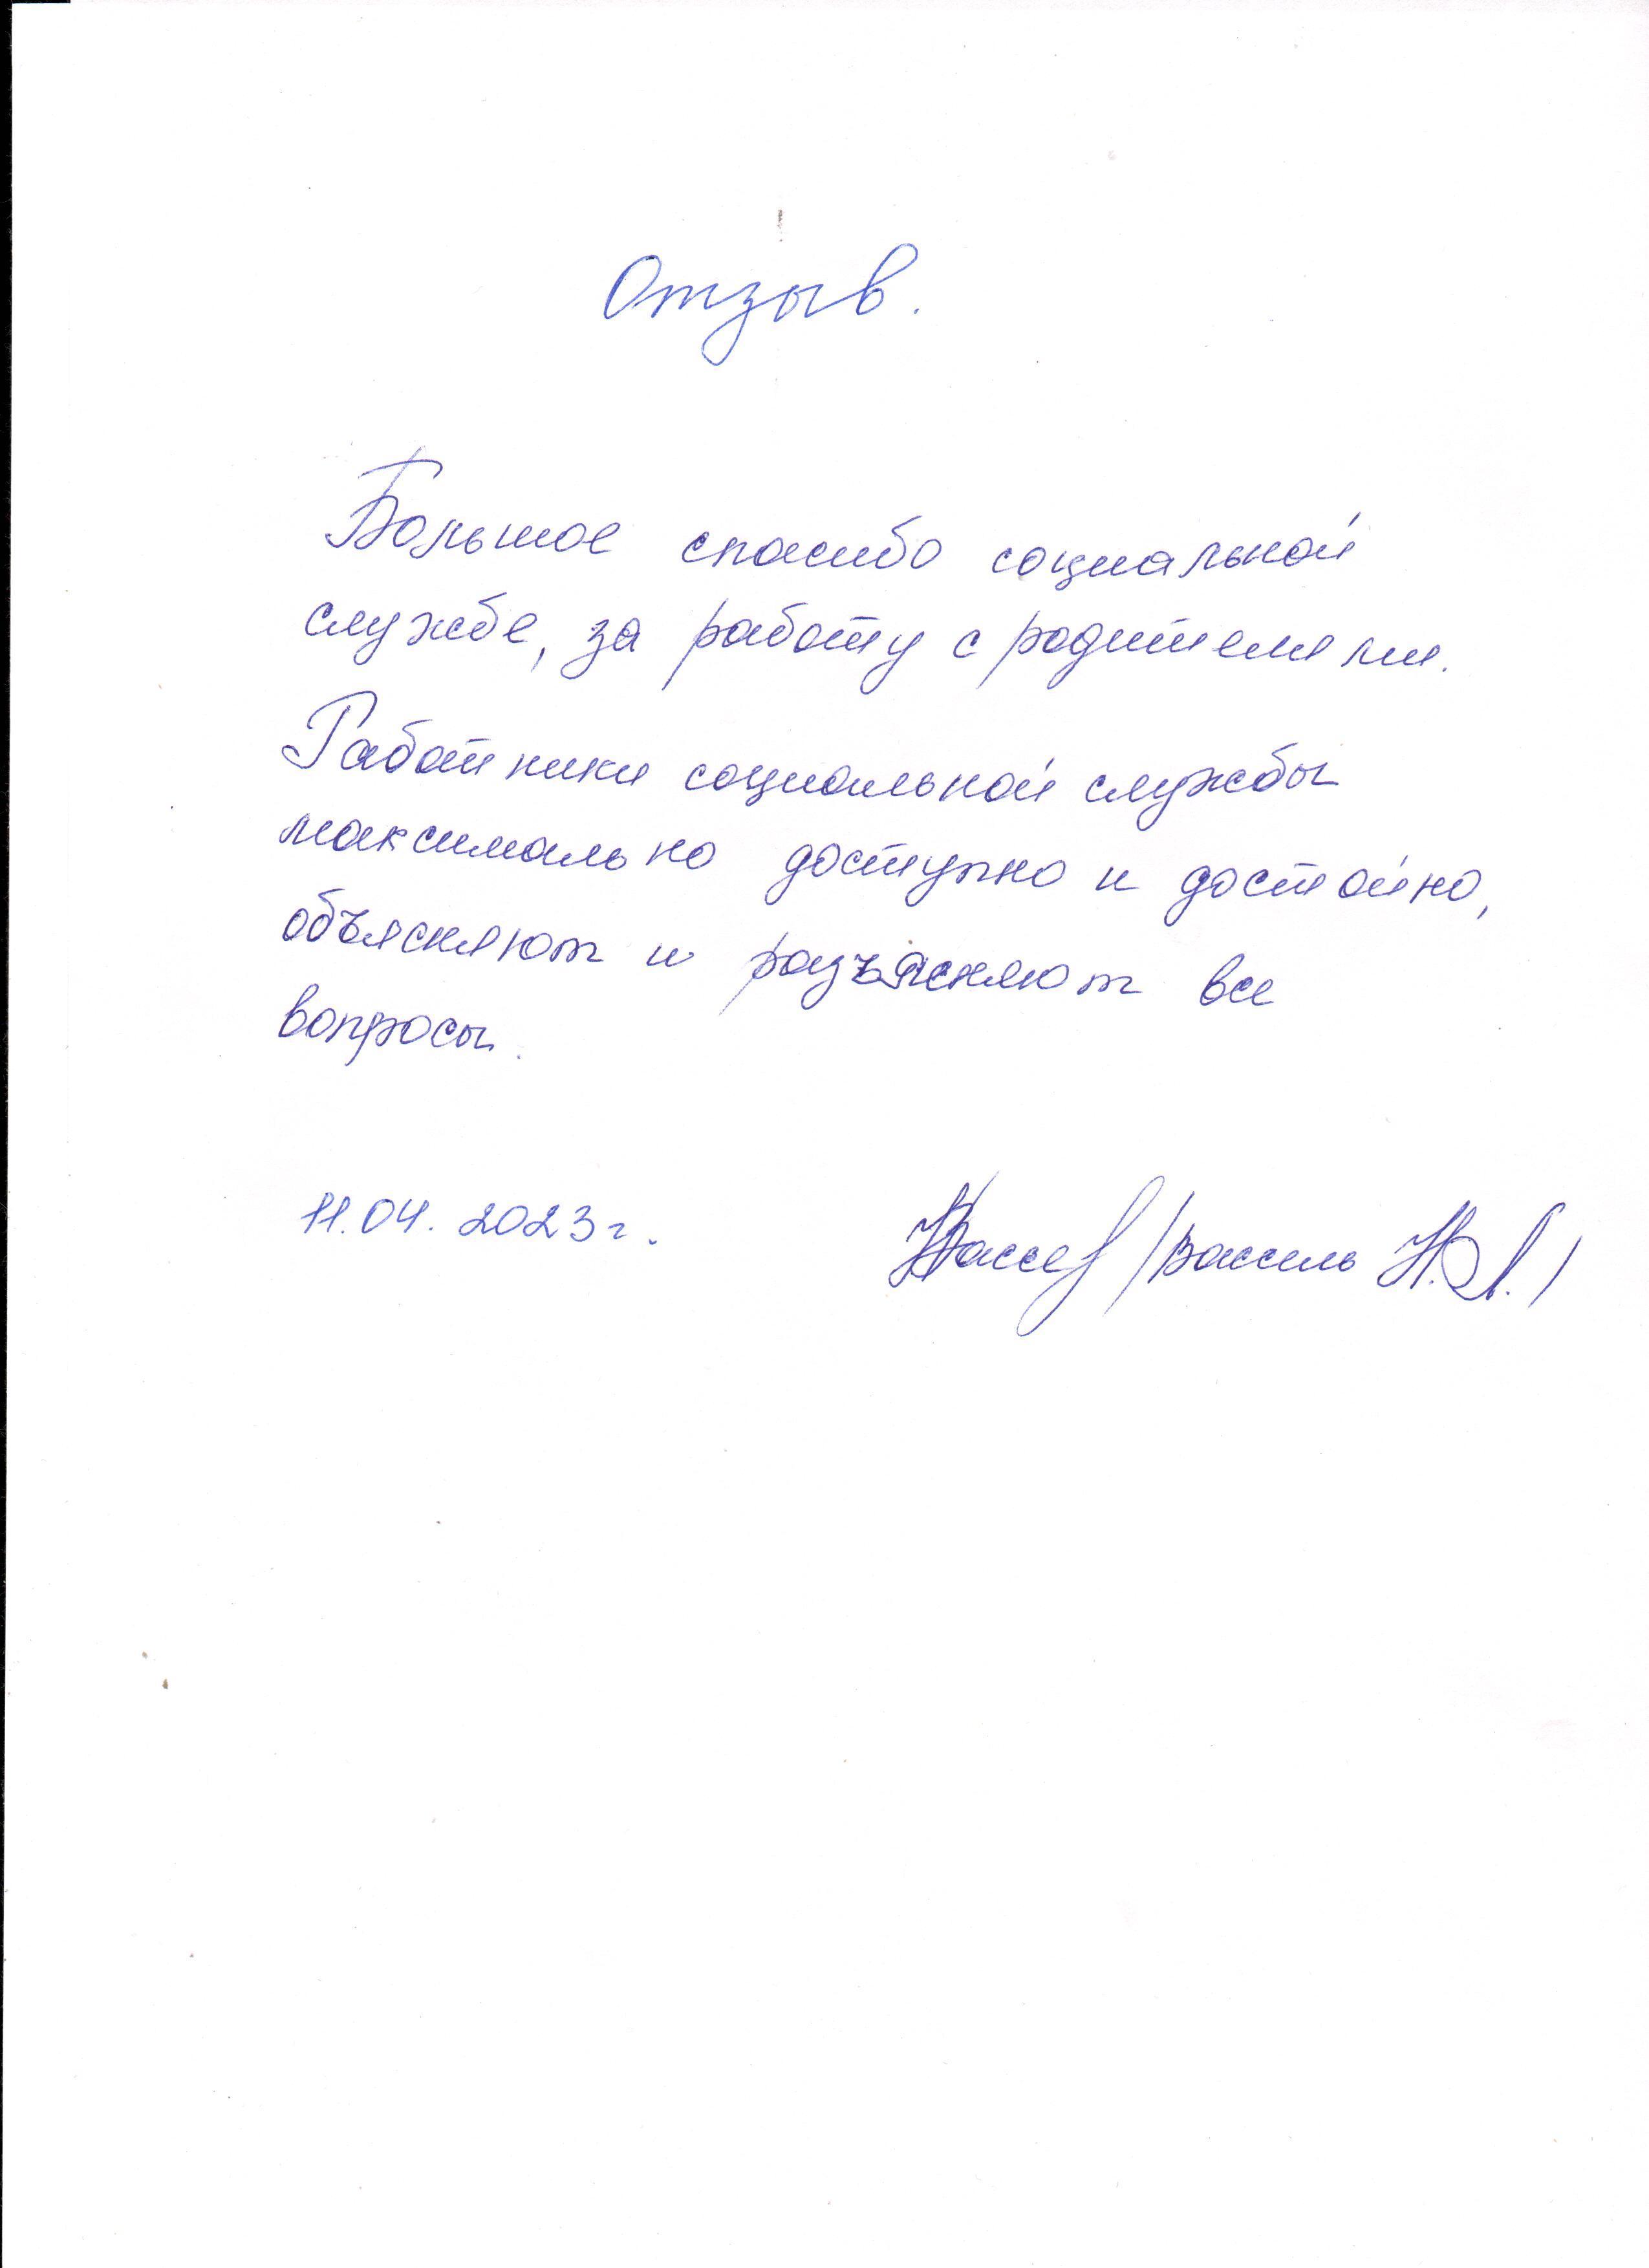 Отзыв.
Большое спасибо социальной
службе, за работу с родителями.
Работники социальной службы
максимально доступно и достойно,
объясняют и разъясняют все
вопросы.
11.04.2023г. /Вассель Н.Я./